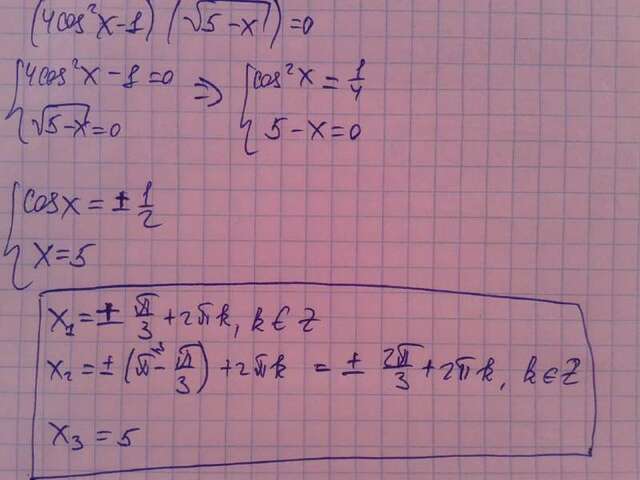 (4cos²x-1)(√5-x)=0
{4cos²x-1=0 ⇒ {cos²x=1/4
√5-x=0 5-x=0
{cosx=±1/2
x=5
x₁=±π/3+2πk, k∈Z
x₂=±(π-π/3)+2πk = ±2π/3+2πk, k∈Z
x₃=5